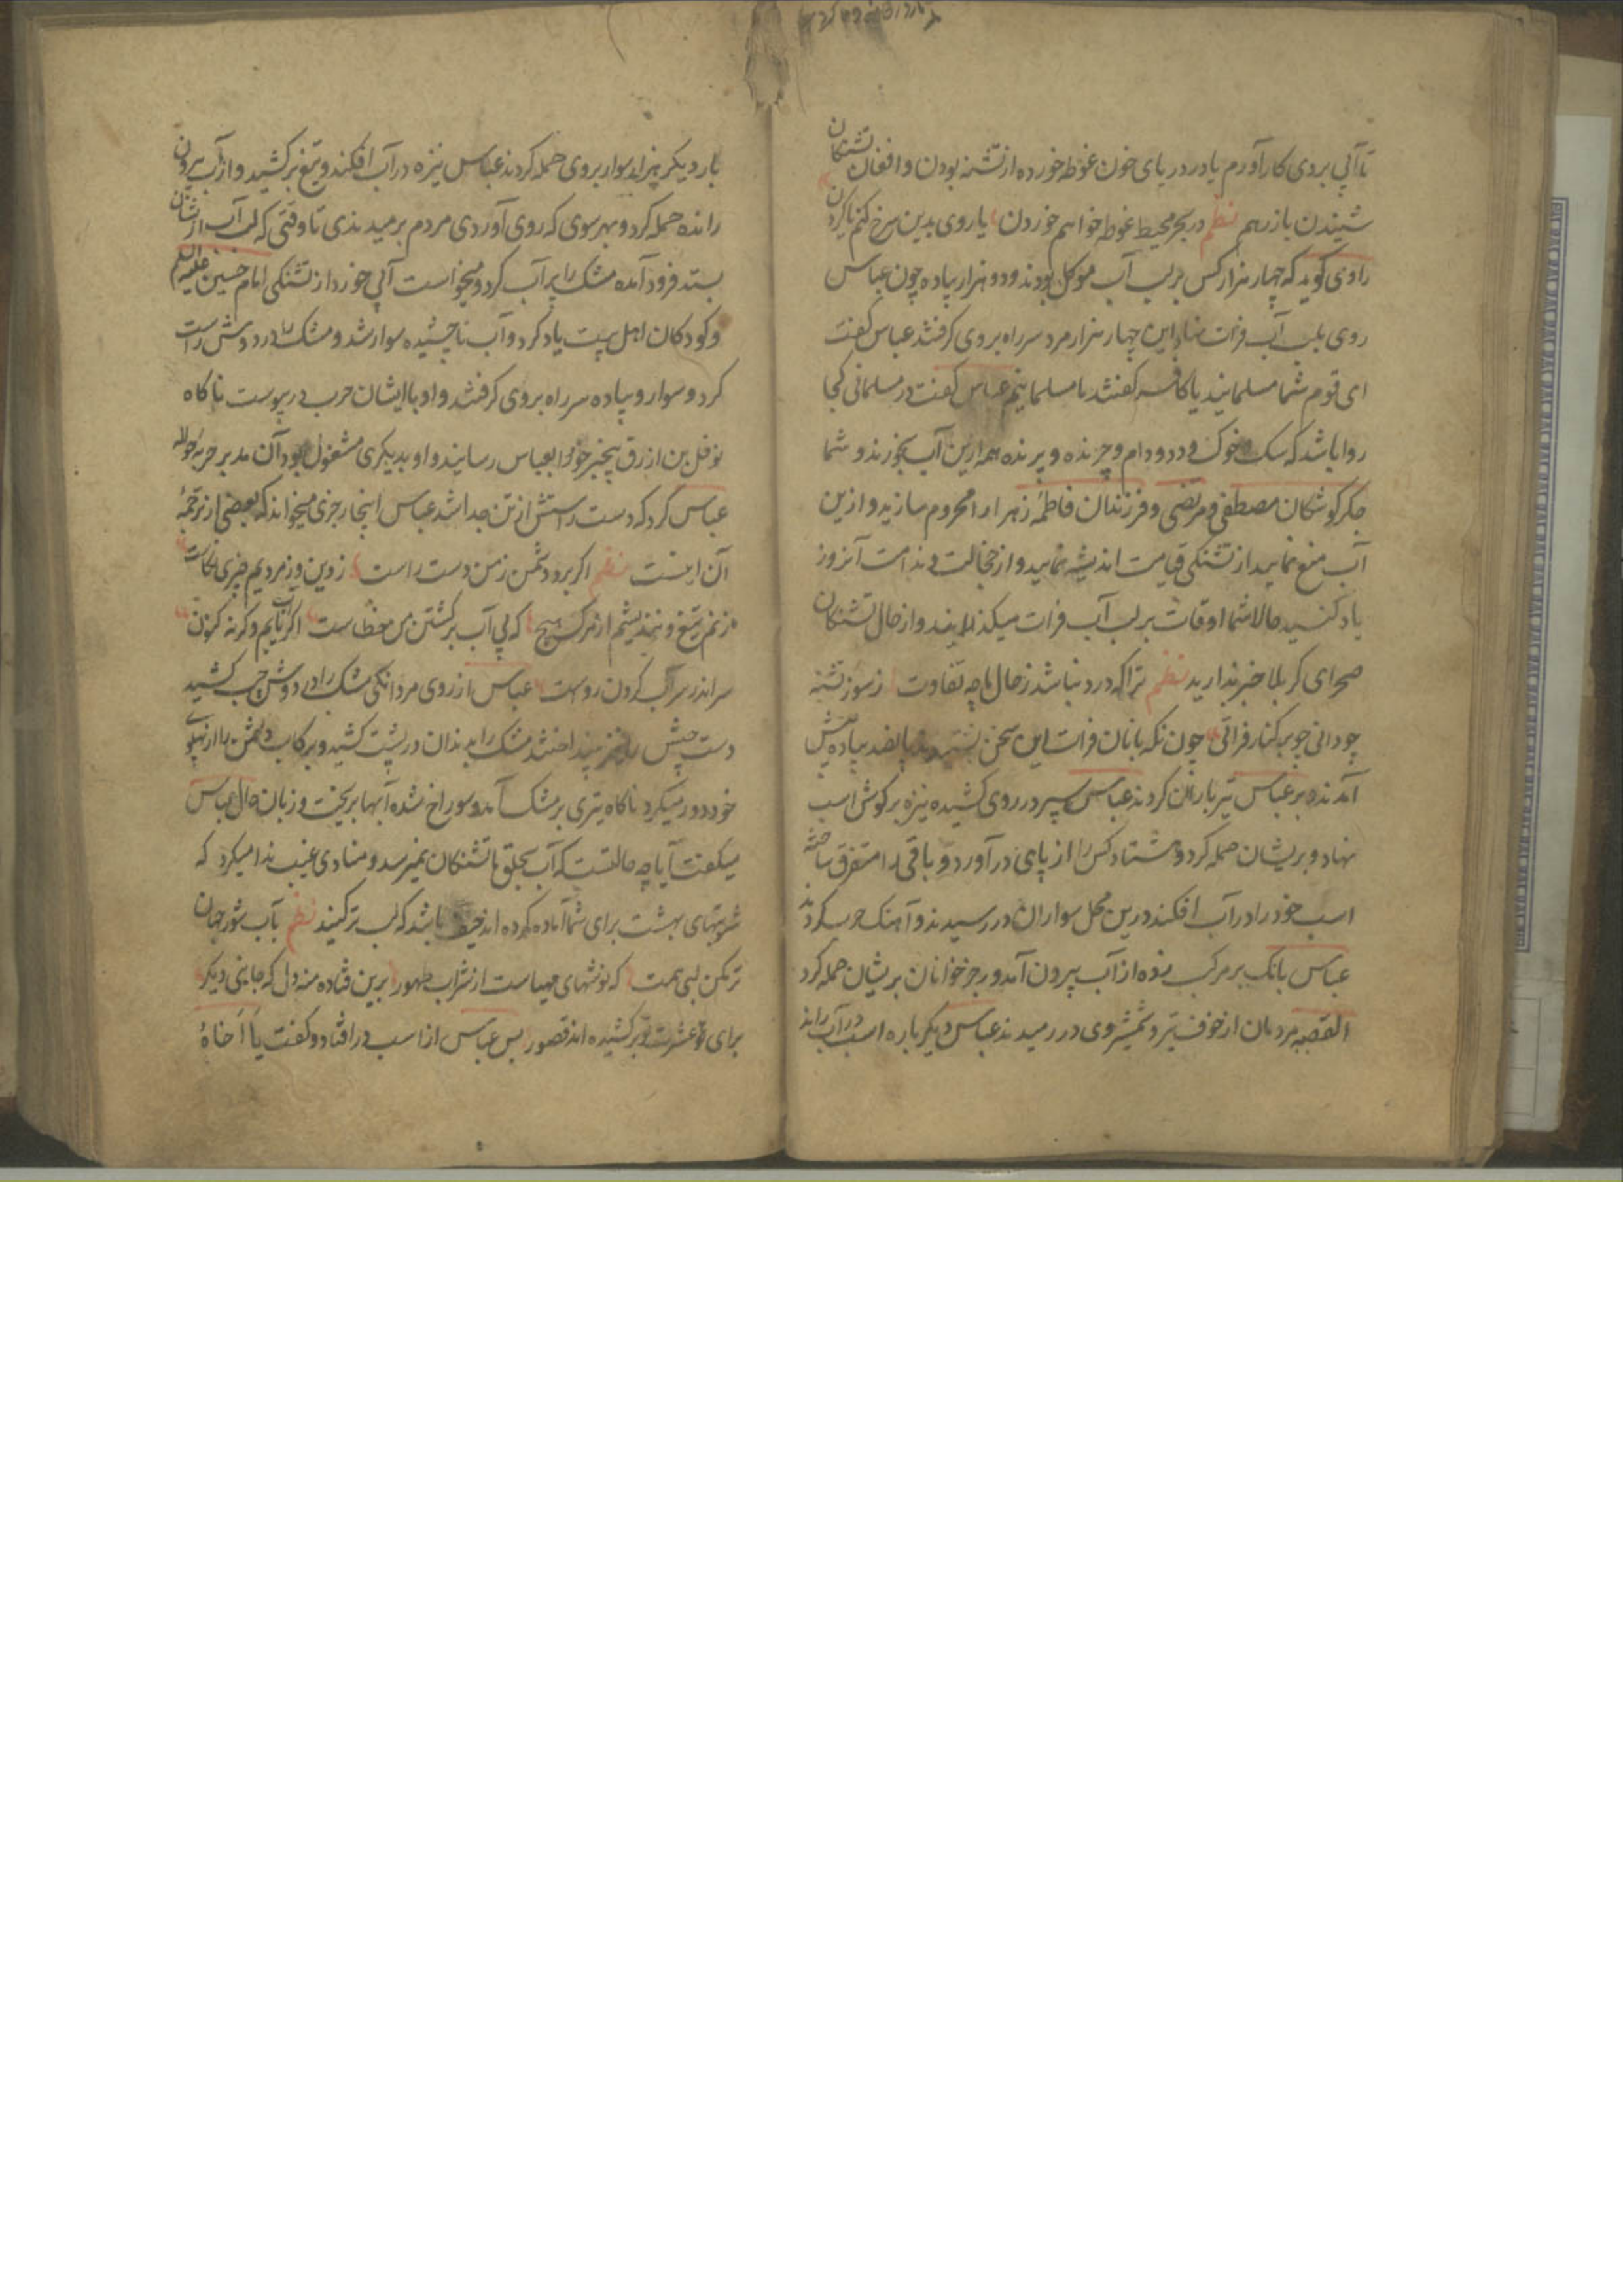 تا آبی بروی کار آورم یا در دریای خون غوطه خورده از تشنه بودن و افغان تشنگان
شنیدن باز رهم نظم در بحر محیط غوطه خواهم خوردن یا روی بدین سرخ کنم یا گردن
راوی گوید که چهار هزار کس بر لب آب موکل بودند و دو هزار پیاده چون عباس
روی بلب آب فرات نهاد این چهار هزار مرد سر راه بروی گرفتند عباس گفت
ای قوم شما مسلمانید یا کافر گفتند ما مسلمانیم عباس گفت در مسلمانی کجا
روا باشد که سک و خوک و دد و دام و چرنده و پرنده همه ازین آب بخورند و شما
جگرگوشکان مصطفی و مرتضی و فرزندان فاطمه زهرا را محروم سازید و ازین
آب منع نمایید از تشنگی قیامت اندیشه نمایید و از خجالت و ندامت آنروز
یاد کنید حالا شما اوقات بر لب آب فرات میگذرانید و از حال تشنگان
صحرای کربلا خبر ندارید نظم ترا که درد نباشد ز حال ما چه تفاوت ز سوز تشنه
چو دانی چو بر کنار فراتی چون نگهبانان فرات این سخن شنیدند پانصد پیاده پیش
آمدند و بر عباس تیر باران کردند عباس سپر در روی کشیده نیزه بر گوش اسب
نهاد و بریشان حمله کرد و هشتاد کس را از پای درآورد و باقی را متفرق ساخته
اسب خود را در آب افکند درین محل سواران در رسیدند و آهنگ حرب کردند
عباس بانگ بر مرکب زده از آب بیرون آمد و رجز خوانان بریشان حمله کرد
القصه مردمان از خوف تیر و شمشیر وی در رمیدند عباس دیگر باره اسب در آب راند
بار دیگر هزار سوار بروی حمله کردند عباس نیزه در آب افکند و تیغ برکشید و از آب بیرون
رانده حمله کرد و بهر سوی که روی آوردی مردم برمیدندی تا وقتی که لب آب از ایشان
بستد فرود آمده مشک را پر آب کرد و میخواست آبی خورد از تشنگی امام حسین علیه السلام
و کودکان اهل بیت یاد کرد و آب ناچشیده سوار شد و مشک را در دوش راست
کرد و سوار و پیاده سر راه بروی گرفتند و او با ایشان حرب در پیوست ناگاه
نوفل بن ازرق بیخبر خود را بعباس رسانید و او بدیگری مشغول بود آن مدبر حربه حواله
عباس کرد که دست راستش از تن جدا شد عباس اینجا رجزی میخواند که بعضی از ترجمه
آن اینست نظم اگر برد دشمن ز من دست راست ز دین وز مردیم چیزی نکاست
ز زخم تیغ و نیندیشم از مرگ هیچ که بی آب برگشتن من خطاست اگر آب یابم وگرنه کنون
سر اندر سر آب کردن رواست عباس از روی مردانگی مشک را در دوش چپ کشید
دست چپش را نیز بینداختند مشک را بدندان در پشت کشید و بر رکاب دشمن را از پهلوی
خود دور میکرد ناگاه تیری بر مشک آمد و سوراخ شده آبها بریخت و زبان حال عباس
میگفت آیا چه حالتست که آب بحلق ما تشنگان نمیرسد و منادی غیب ندا میکرد که
شربتهای بهشت برای شما آماده کرده اند حیف باشد که لب تر کنید نظم بآب شور جهان
تر مکن لب همت که نوشهای مهیاست از شراب طهور برین فتاده منه دل که جایی دیگر
برای عشرت تو برکشیده اند قصور پس عباس از اسب در افتاد و گفت یا اخاه